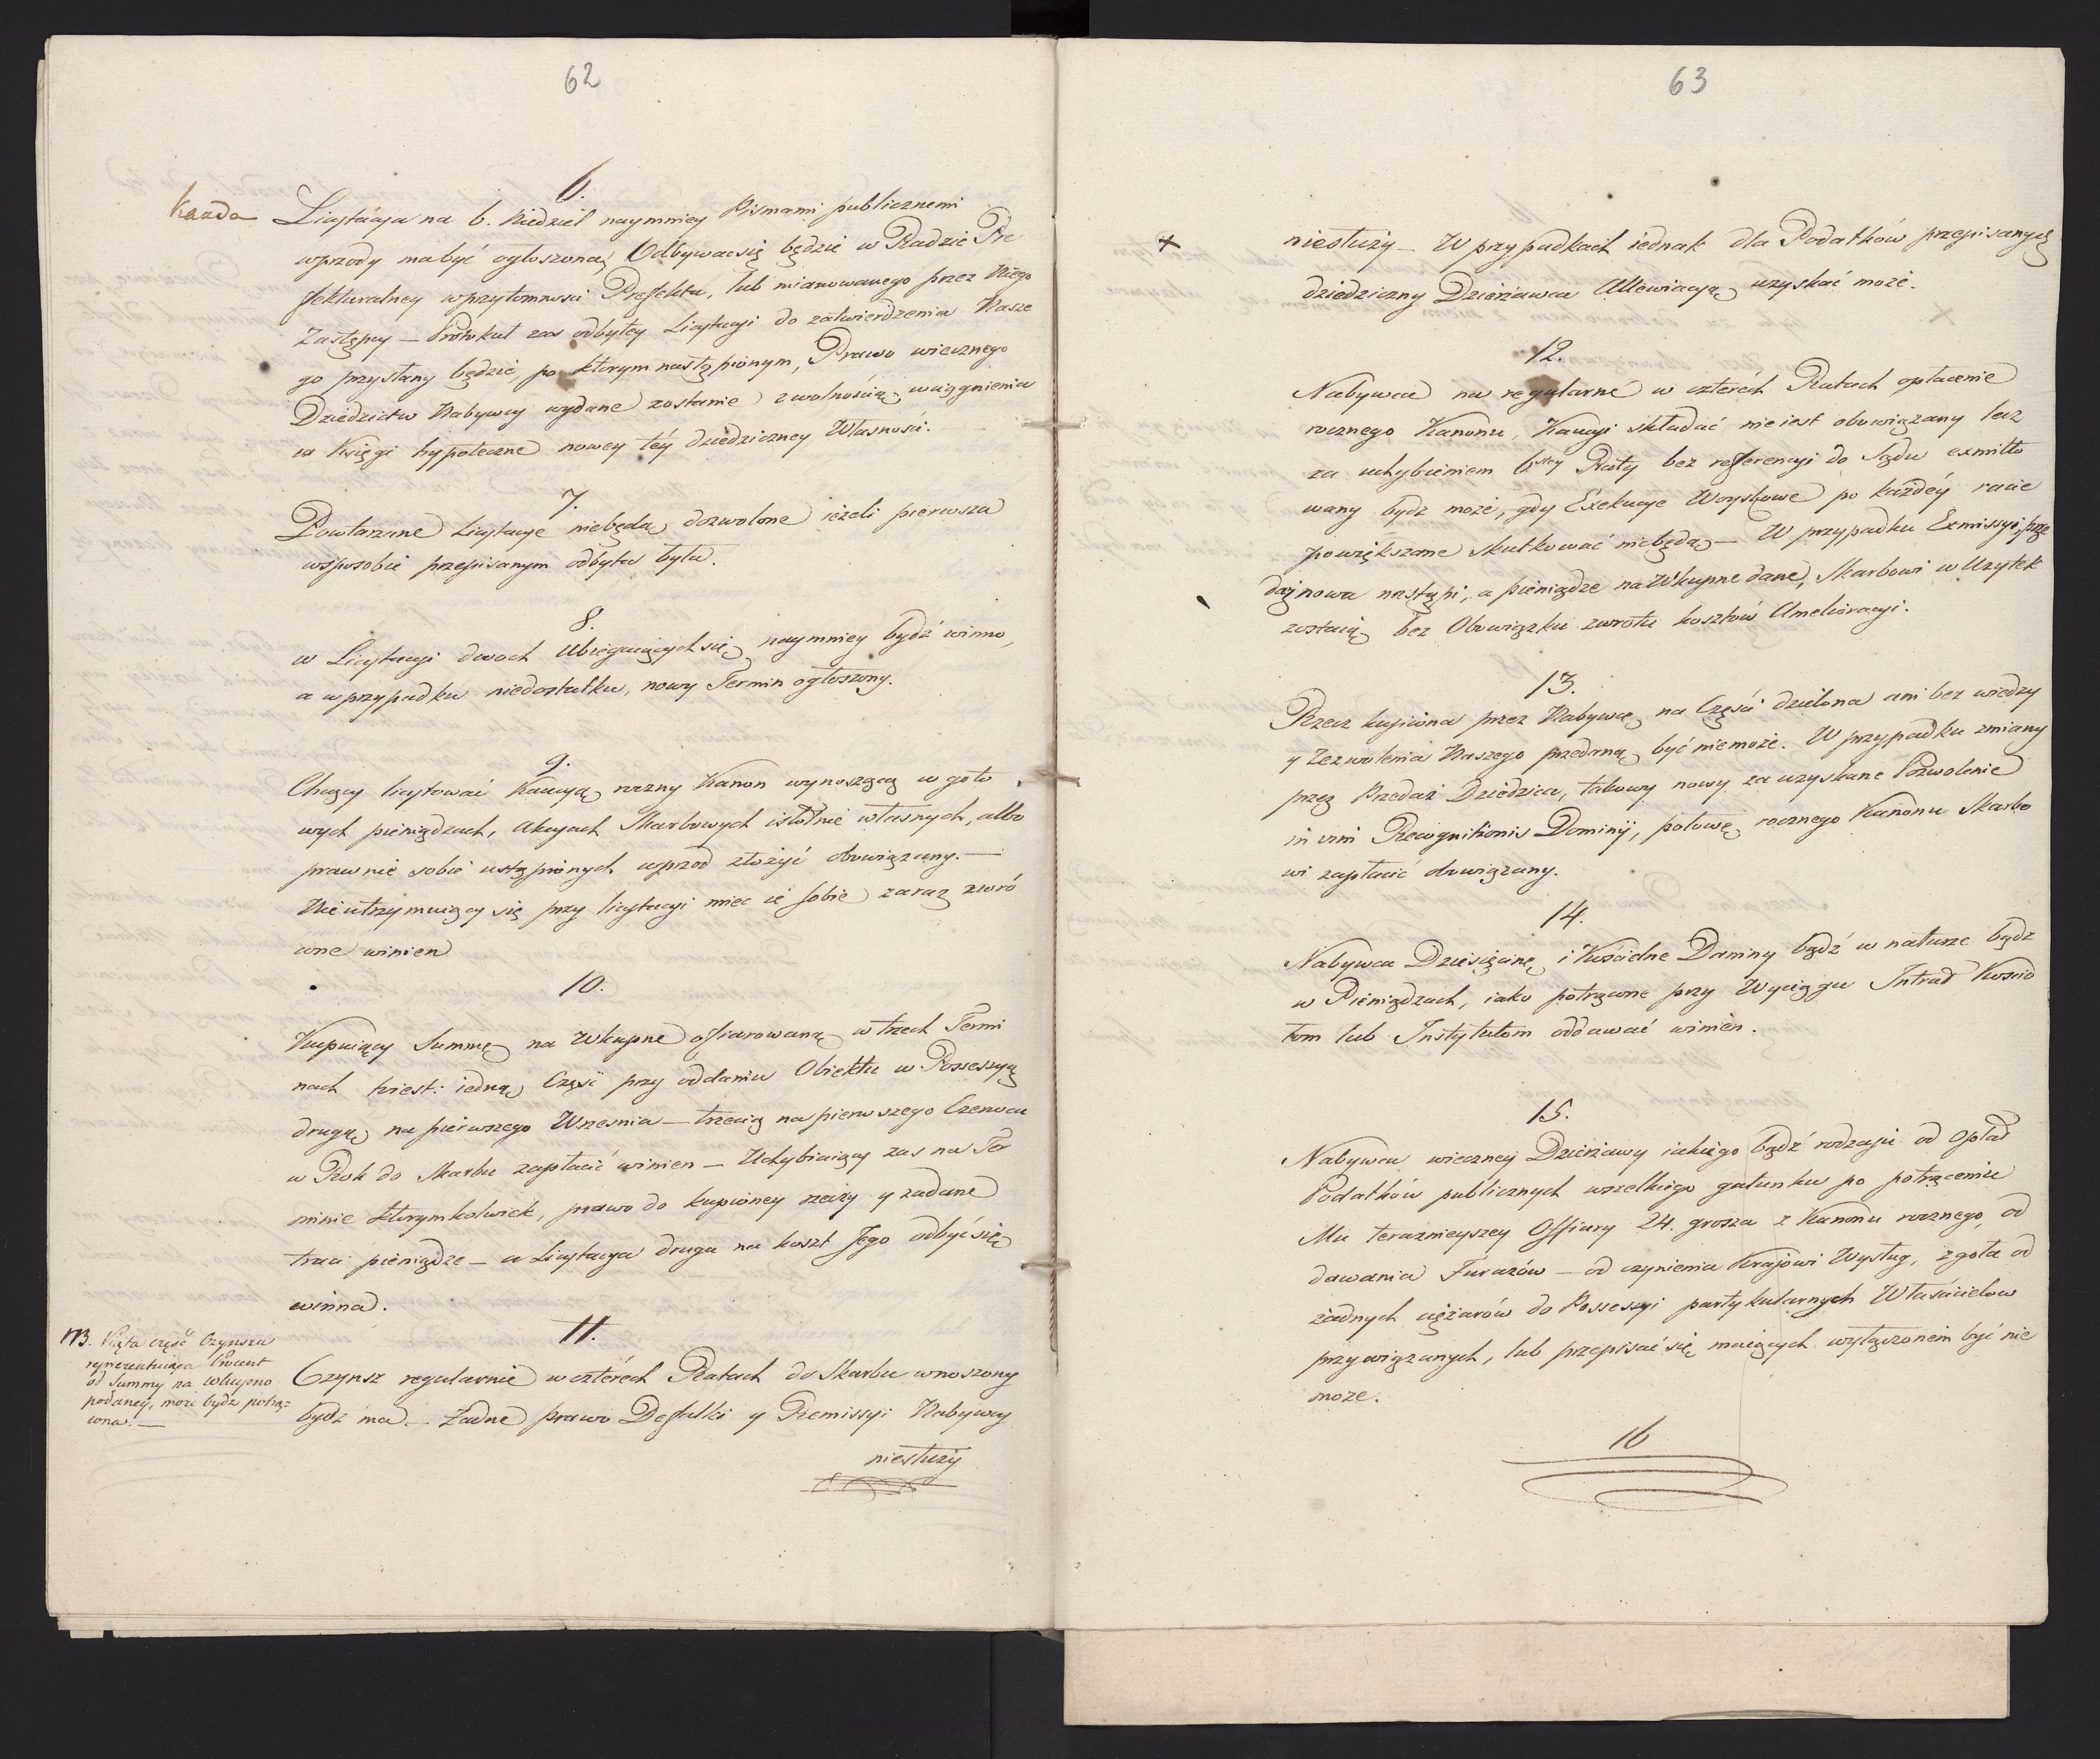 62
6.
kazda Licytacya na 6. Niedziel naymniey Pismami publicznemi
wprzody ma być ogłoszoną, Odbywać się będzie w Radzie Pre
fekturalney w przytomności Prefekta, lub mianowanego przez Niego
Zastępcy — Protokuł zas odbytey Licytacyi do zatwierdzenia Nasze
go przysłany będzie, po ktorym nastąpionym, Prawo wiecznego
Dziedzictwa Nabywcy wydane zostanie z wolnością wciągnienia
w Księgi hypoteczne nowey téy dziedziczney Własności.
7.
Powtarzane Licytacye niebędą dozwolone ieżeli pierwsza
w sposobie przepisanym odbyta była.
8.
w Licytacyi dwoch Ubiegaiących się naymniey bydź winno,
a w przypadku niedostatku, nowy Termin ogłoszony.
9.
Chcący licytować Kaucyą roczny Kanon wynoszącą w goto
wych pieniądzach, Akcyach Skarbowych istotnie własnych, albo
prawnie sobie ustąpionych wprzod złożyć obowiązany. —
Nieutrzymuiący się przy licytacyi mieć ie sobie zaraz zwró
cone winien
10.
Kupuiący Summę na Wkupne offiarowaną w trzech Termi
nach to iest: iedną Część przy oddaniu Obiektu w Possessyą
drugą na pierwszego Wrzesnia — trzecią na pierwszego Czerwca
w Rok do Skarbu zapłacić winien — Uchybiaiący zas na Ter
minie ktorymkolwiek, prawo do kupioney rzeczy y zadane
traci pieniądze — a Licytacya druga na koszt Jego odbyć się
winna.
11.
Czynsz regularnie w czterech Ratach do Skarbu wnoszony
bydz ma. Żadne prawo Defalki y Remissyi Nabywcy
niesłuży
NB. Piąta część Czynszu
reprezentuiąca Procent
od Summy na Wkupno
podaney, może bydź potrą=
cona. —
63
× niesłuży — W przypadkach iednak dla Podatków przepisanych
dziedziczny Dzierżawca Allewiacyą uzyskać może.
12.
Nabywca na regularne w czterech Ratach opłacenie
rocznego Kanonu, Kaucyi składać nieiest obowiązany lecz
za uchybieniem Raty bez referencyi do Sądu exmitto
wany bydz może, gdy Exekucye Woyskowe po każdéy racie
powiększane skutkować niebędą — W przypadku Exmissyi, prze
daż nowa nastąpi, a pieniądze na Wkupne dane, Skarbowi w Uzytek
zostaią bez Obowiązku zwrotu kosztów Amelioracyi.
13.
Rzecz kupiona przez Nabywcę na Części dzielona ani bez wiedzy
y Zezwolenia Naszego przedaną być niemoże. W przypadku zmiany
przez Przedaż Dziedzica, takowy nowy za uzyskane Pozwolenie
in vim Recognitionis Dominij, połowę rocznego Kanonu Skarbo
wi zapłacić obowiązany.
14.
Nabywca Dziesięcinę i Kościelne Daniny bądź w naturze bądz
w Pieniądzach, iako potrącone przy Wyciągu Intrat Kościo
łom lub Instytutom oddawać winien.
15.
Nabywca wieczney Dzierżawy iakiego bądź rodzaju od Opłat
Podatków publicznych wszelkiego gatunku po potrąceniu
Mu teraznieyszey Offiary 24. grosza z Kanonu rocznego, od
dawania Furazów — od czynienia Krajowi Wysług, zgoła od
żadnych ciężarów do Possessyi partykularnych Właścicielow
przywiązanych, lub przepisać się maiących wyłączonem być nie
może.
16